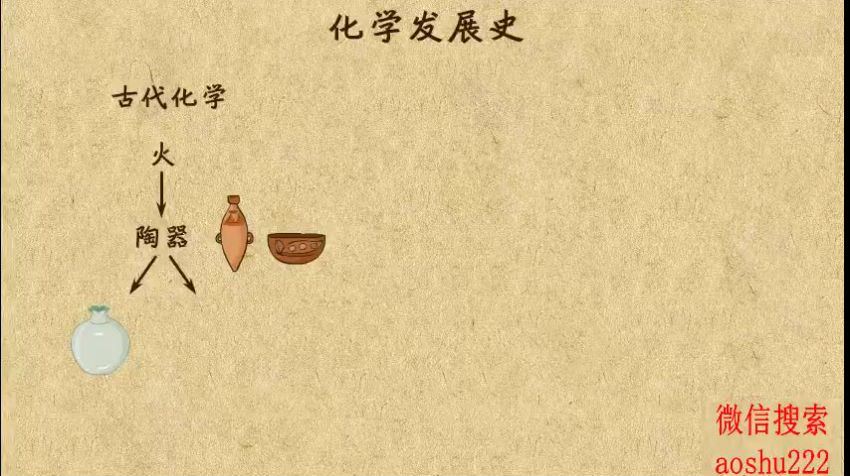 化学发展史
古代化学
火
陶器
微信搜索
aoshu222